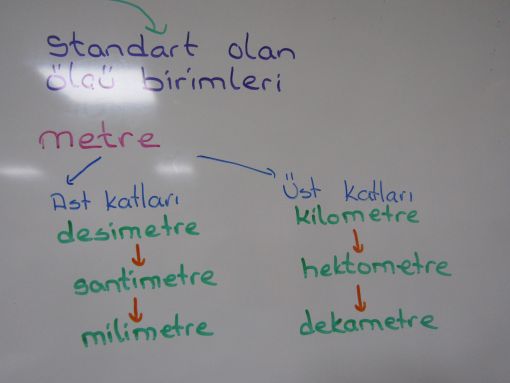 standart olan
ölçü birimleri
metre
Ast katları
desimetre
santimetre
milimetre
Üst katları
kilometre
hektometre
dekametre